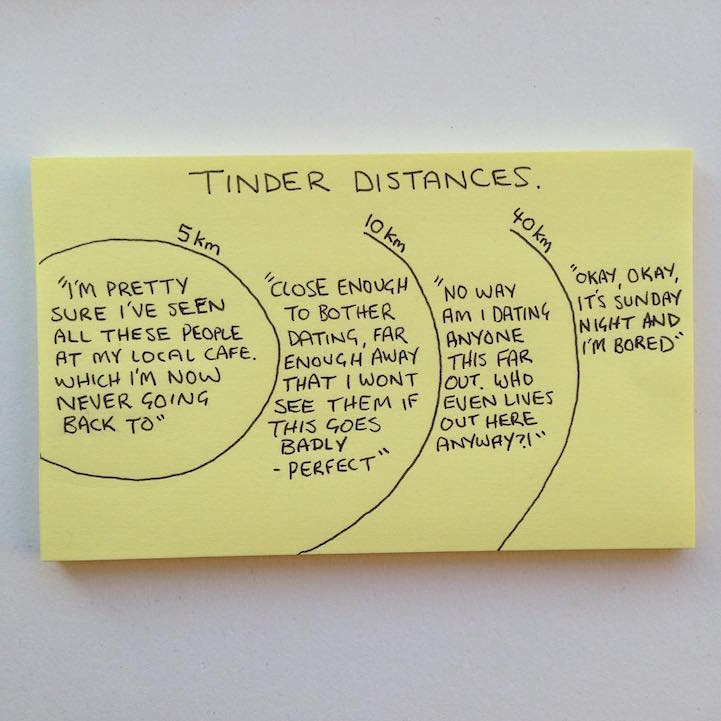 TINDER DISTANCES.
5 km
"I'M PRETTY
SURE I'VE SEEN
ALL THESE PEOPLE
AT MY LOCAL CAFE.
WHICH I'M NOW
NEVER GOING
BACK TO"
10 km
"CLOSE ENOUGH
TO BOTHER
DATING, FAR
ENOUGH AWAY
THAT I WONT
SEE THEM IF
THIS GOES
BADLY
- PERFECT"
40 km
"NO WAY
AM I DATING
ANYONE
THIS FAR
OUT. WHO
EVEN LIVES
OUT HERE
ANYWAY?!"
"OKAY, OKAY,
IT'S SUNDAY
NIGHT AND
I'M BORED"